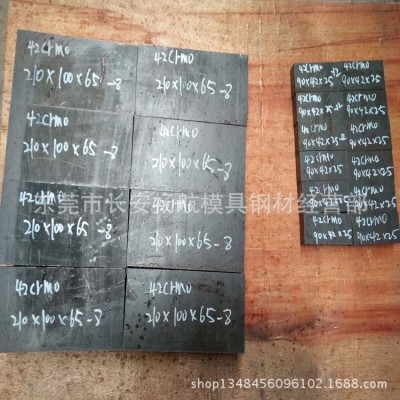 42CrMo
210×100×65-8
42CrMo
210×100×65-8
42CrMo
210×100×65-8
42CrMo
210×100×65-8
42CrMo
210×100×65-8
42CrMo
210×100×65-8
42CrMo
210×100×65-8
42CrMo
210×100×65-8
42CrMo
90×42×25-12
42CrMo
90×42×25
42CrMo
90×42×25-12
42CrMo
90×42×25
42CrMo
90×42×25-12
42CrMo
90×42×25
42CrMo
90×42×25
42CrMo
90×42×25
42CrMo
90×42×25
42CrMo
90×42×25
42CrMo
90×42×25
42CrMo
90×42×25
东莞市长安 航模具钢材经营部
shop1348456096102.1688.com